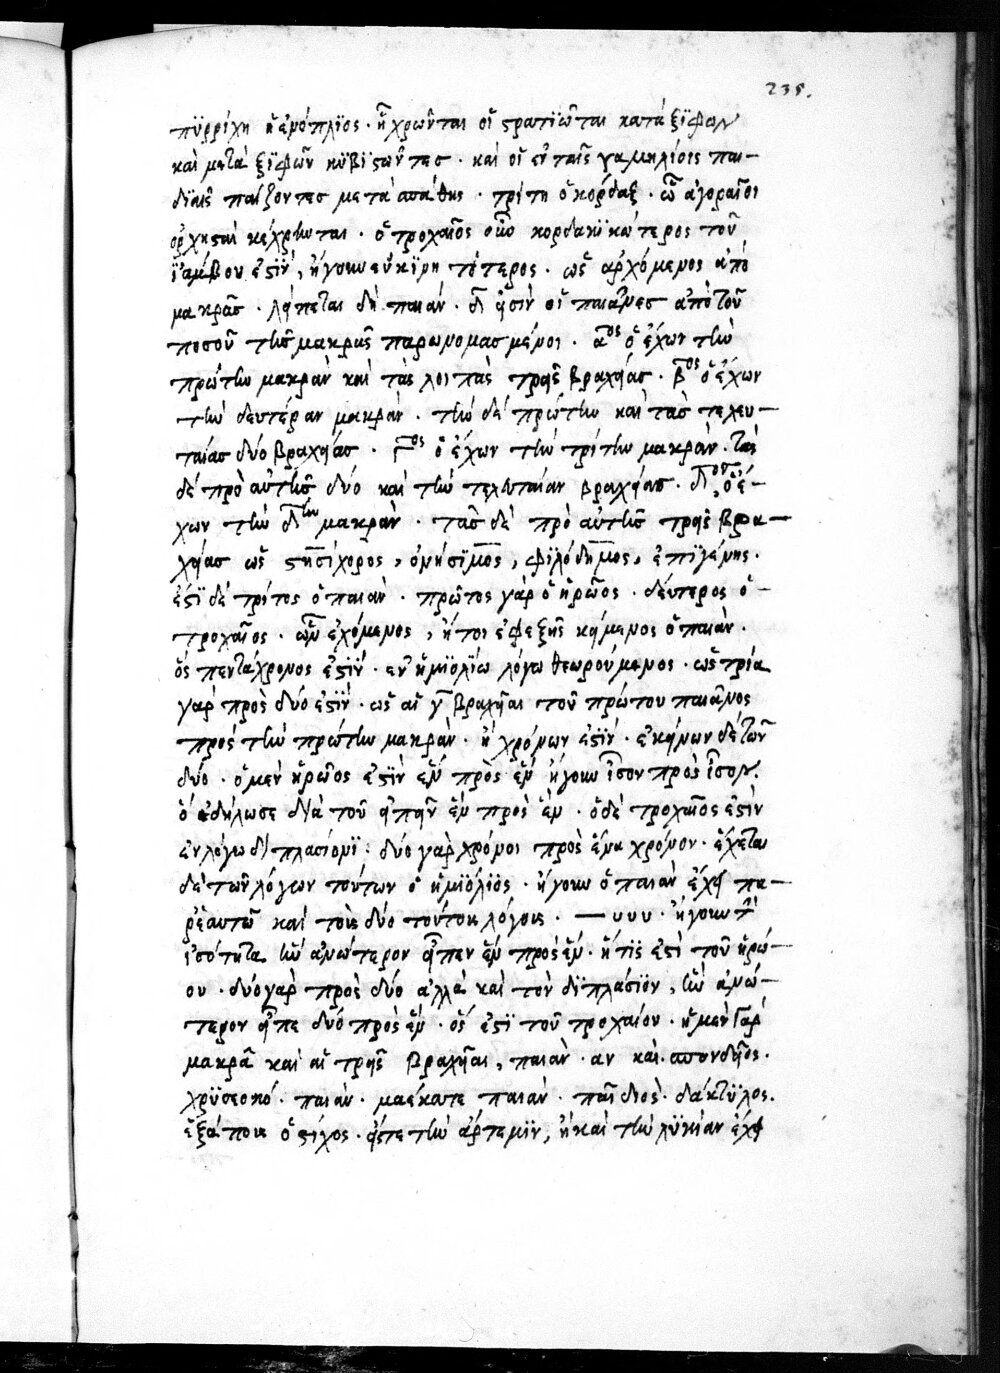 235.
πϋρρίχη ἡ ἐνόπλϊος · ᾗ χρῶνται οἱ στρατϊῶται κατὰ ξίφων
καὶ μετὰ ξϊφῶν κϋβϊστῶντες · καὶ οἱ ἐν ταῖς γαμηλίοις παι-
διαῖς παίζοντες μετὰ σπάθης · τρίτη ὁ κόρδαξ · ᾧ ἀγοραῖοι
ὀρχησταὶ κέχρηνται · ὁ τροχαῖος οὖν κορδακϊκώτερος τοῦ
ϊάμβου ἐστὶν, ἤγουν εὐκϊνητότερος · ὡς ἀρχόμενος ἀπὸ
μακρᾶς · λείπεται δὴ παιάν · δ εἰσὶν οἱ παιᾶνες ἀπὸ τοῦ
ποσοῦ τῆς μακρᾶς παρωνομασμένοι · αος ὁ ἔχων τὴν
πρώτην μακρὰν καὶ τὰς λοιπὰς τρεῖς βραχείας · βος ὁ ἔχων
τὴν δευτέραν μακρὰν · τὴν δὲ πρώτην καὶ τὰς τελευ-
ταίας δύο βραχείας · γος ὁ ἔχων τὴν τρίτην μακρὰν · τὰς
δὲ πρὸ αὐτῆς δύο καὶ τὴν τελευταίαν βραχείας · δος ὁ ἔ-
χων τὴν δτην μακρὰν · τὰς δὲ πρὸ αὐτῆς τρεῖς βρα-
χείας ὡς στησίχορος, ὀνήσϊμος, φϊλόδημος, ἐπϊγένης ·
ἔστϊ δὲ τρίτος ὁ παιάν · πρῶτος γὰρ ὁ ἡρῶος · δεύτερος ὁ
τροχαῖος · ὧν ἐχόμενος, ἤτοι ἐφεξῆς κείμενος ὁ παιάν ·
ὃς πεντάχρονος ἐστὶν · ἐν ἡμϊολίω λόγω θεωρούμενος · ὡς τρία
γὰρ πρὸς δύο ἐστὶν · ὡς αἱ γ βραχεῖαι τοῦ πρώτου παιᾶνος
πρὸς τὴν πρώτην μακρὰν · ἡ χρόνων ἐστὶν · ἐκείνων δὲ τῶν
δύο · ὁ μὲν ἡρῶος ἐστὶν ἓν πρὸς ἓν ἤγουν ἴσον πρὸς ἴσον.
ὁ ἐδήλωσε διὰ τοῦ εἰπεῖν ἓν πρὸς ἓν · ὁ δὲ τροχαῖος ἐστὶν
ἐν λόγω διπλασίονϊ : δύο γὰρ χρόνοι πρὸς ἕνα χρόνον · ἔχεται
δὲ τῶν λόγων τούτων ὁ ἡμϊόλϊος · ἤγουν ὁ παιὰν ἔχει πα-
ρ' ἑαυτῶ καὶ τοὺς δύο τούτους λόγους · — υυυ · ἤγουν τὴν
ἰσότητα ἣν ἀνώτερον εἶπεν ἓν πρὸς ἓν · ἥτϊς ἐστὶ τοῦ ἡρώ-
ου · δύο γὰρ πρὸς δύο ἀλλὰ καὶ τὸν διπλάσϊον, ὃν ἀνώ-
τερον εἶπε δύο πρὸς ἓν · ὅς ἐστϊ τοῦ τροχαίου · ἡ μὲν γὰρ
μακρὰ καὶ αἱ τρεῖς βραχεῖαι, παιάν · αν καὶ · σπονδεῖος ·
χρϋσεοκό · παιάν · μαέκατε παιάν · παῖ διος · δάκτϋλος.
ἑξάπους ὁ στίχος · εἴτε τὴν ἄρτεμϊν, ἢ καὶ τὴν λϋκίαν ἔχει